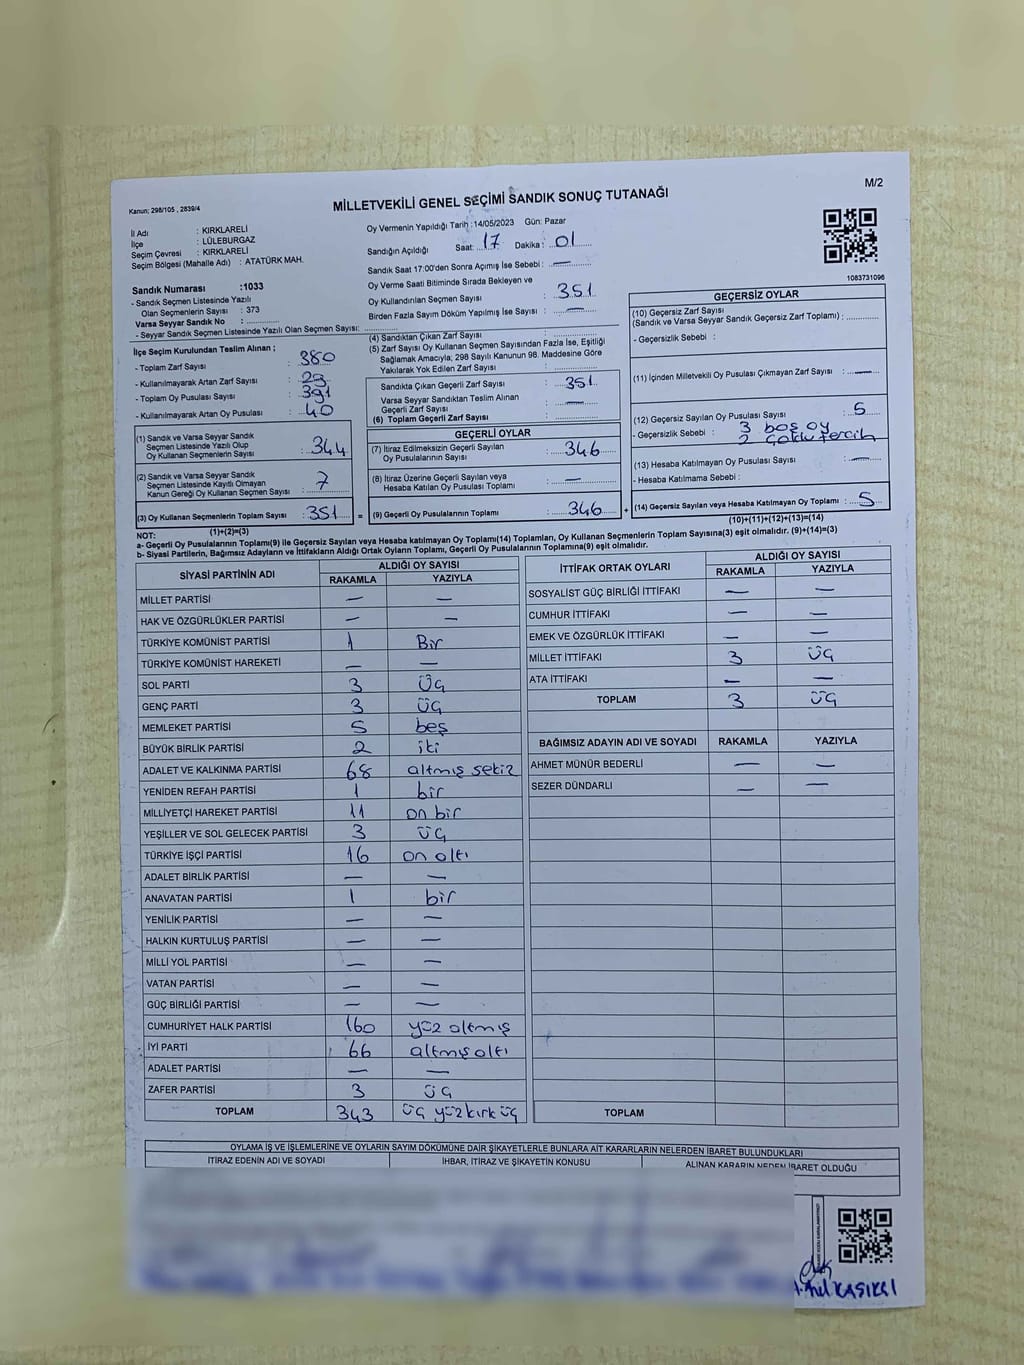 M/2
Kanun: 298/105 , 2839/4
MİLLETVEKİLİ GENEL SEÇİMİ SANDIK SONUÇ TUTANAĞI
İl Adı : KIRKLARELİ
İlçe : LÜLEBURGAZ
Seçim Çevresi : KIRKLARELİ
Seçim Bölgesi (Mahalle Adı) : ATATÜRK MAH.
Sandık Numarası :1033
- Sandık Seçmen Listesinde Yazılı
Olan Seçmenlerin Sayısı : 373
Varsa Seyyar Sandık No : ..............
- Seyyar Sandık Seçmen Listesinde Yazılı Olan Seçmen Sayısı: ..............
Oy Vermenin Yapıldığı Tarih :14/05/2023 Gün: Pazar
Sandığın Açıldığı Saat: 17 Dakika : 01
Sandık Saat 17:00'den Sonra Açılmış İse Sebebi : —
Oy Verme Saati Bitiminde Sırada Bekleyen ve
Oy Kullandırılan Seçmen Sayısı : 351
Birden Fazla Sayım Döküm Yapılmış İse Sayısı : —
1083731096
İlçe Seçim Kurulundan Teslim Alınan ;
- Toplam Zarf Sayısı : 380
- Kullanılmayarak Artan Zarf Sayısı : 29
- Toplam Oy Pusulası Sayısı : 391
- Kullanılmayarak Artan Oy Pusulası : 40
(1) Sandık ve Varsa Seyyar Sandık
Seçmen Listesinde Yazılı Olup
Oy Kullanan Seçmenlerin Sayısı : 344
(2) Sandık ve Varsa Seyyar Sandık
Seçmen Listesinde Kayıtlı Olmayan
Kanun Gereği Oy Kullanan Seçmen Sayısı : 7
(3) Oy Kullanan Seçmenlerin Toplam Sayısı : 351 =
(1)+(2)=(3)
(4) Sandıktan Çıkan Zarf Sayısı : ..............
(5) Zarf Sayısı Oy Kullanan Seçmen Sayısından Fazla İse, Eşitliği
Sağlamak Amacıyla; 298 Sayılı Kanunun 98. Maddesine Göre
Yakılarak Yok Edilen Zarf Sayısı : ..............
Sandıkta Çıkan Geçerli Zarf Sayısı : 351
Varsa Seyyar Sandıktan Teslim Alınan
Geçerli Zarf Sayısı : —
(6) Toplam Geçerli Zarf Sayısı : ..............
GEÇERLİ OYLAR
(7) İtiraz Edilmeksizin Geçerli Sayılan
Oy Pusulalarının Sayısı : 346
(8) İtiraz Üzerine Geçerli Sayılan veya
Hesaba Katılan Oy Pusulası Toplamı : —
(9) Geçerli Oy Pusulalarının Toplamı : 346 +
GEÇERSİZ OYLAR
(10) Geçersiz Zarf Sayısı
(Sandık ve Varsa Seyyar Sandık Geçersiz Zarf Toplamı) : ..............
- Geçersizlik Sebebi :
(11) İçinden Milletvekili Oy Pusulası Çıkmayan Zarf Sayısı : —
(12) Geçersiz Sayılan Oy Pusulası Sayısı : 5
- Geçersizlik Sebebi : 3 boş oy
2 Çoklu tercih
(13) Hesaba Katılmayan Oy Pusulası Sayısı : —
- Hesaba Katılmama Sebebi :
(14) Geçersiz Sayılan veya Hesaba Katılmayan Oy Toplamı : 5
(10)+(11)+(12)+(13)=(14)
NOT:
a- Geçerli Oy Pusulalarının Toplamı(9) ile Geçersiz Sayılan veya Hesaba Katılmayan Oy Toplamı(14) Toplamları, Oy Kullanan Seçmenlerin Toplam Sayısına(3) eşit olmalıdır. (9)+(14)=(3)
b- Siyasi Partilerin, Bağımsız Adayların ve İttifakların Aldığı Ortak Oyların Toplamı, Geçerli Oy Pusulalarının Toplamına(9) eşit olmalıdır.
SİYASİ PARTİNİN ADI ALDIĞI OY SAYISI
RAKAMLA YAZIYLA
MİLLET PARTİSİ — —
HAK VE ÖZGÜRLÜKLER PARTİSİ — —
TÜRKİYE KOMÜNİST PARTİSİ 1 Bir
TÜRKİYE KOMÜNİST HAREKETİ — —
SOL PARTİ 3 Üç
GENÇ PARTİ 3 Üç
MEMLEKET PARTİSİ 5 beş
BÜYÜK BİRLİK PARTİSİ 2 iki
ADALET VE KALKINMA PARTİSİ 68 altmış sekiz
YENİDEN REFAH PARTİSİ 1 bir
MİLLİYETÇİ HAREKET PARTİSİ 11 on bir
YEŞİLLER VE SOL GELECEK PARTİSİ 3 üç
TÜRKİYE İŞÇİ PARTİSİ 16 on altı
ADALET BİRLİK PARTİSİ — —
ANAVATAN PARTİSİ 1 bir
YENİLİK PARTİSİ — —
HALKIN KURTULUŞ PARTİSİ — —
MİLLİ YOL PARTİSİ — —
VATAN PARTİSİ — —
GÜÇ BİRLİĞİ PARTİSİ — —
CUMHURİYET HALK PARTİSİ 160 yüz altmış
İYİ PARTİ 66 altmış altı
ADALET PARTİSİ — —
ZAFER PARTİSİ 3 üç
TOPLAM 343 üç yüz kırk üç
İTTİFAK ORTAK OYLARI ALDIĞI OY SAYISI
RAKAMLA YAZIYLA
SOSYALİST GÜÇ BİRLİĞİ İTTİFAKI — —
CUMHUR İTTİFAKI — —
EMEK VE ÖZGÜRLÜK İTTİFAKI — —
MİLLET İTTİFAKI 3 üç
ATA İTTİFAKI — —
TOPLAM 3 üç
BAĞIMSIZ ADAYIN ADI VE SOYADI RAKAMLA YAZIYLA
AHMET MÜNÜR BEDERLİ — —
SEZER DÜNDARLI — —
TOPLAM
OYLAMA İŞ VE İŞLEMLERİNE VE OYLARIN SAYIM DÖKÜMÜNE DAİR ŞİKAYETLERLE BUNLARA AİT KARARLARIN NELERDEN İBARET BULUNDUKLARI
İTİRAZ EDENİN ADI VE SOYADI İHBAR, İTİRAZ VE ŞİKAYETİN KONUSU ALINAN KARARIN NEDEN İBARET OLDUĞU